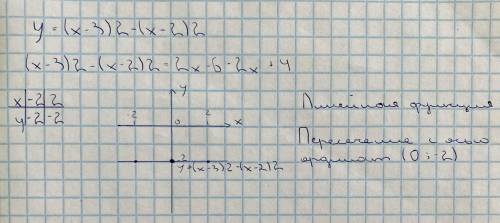 y = (x-3)2-(x-2)2
(x-3)2-(x-2)2 = 2x-6-2x+4
x -2 2
y -2 -2
y
-2 0 2 x
-2
y=(x-3)2-(x-2)2
Линейная функция
Пересечение с осью
ординат (0;-2)